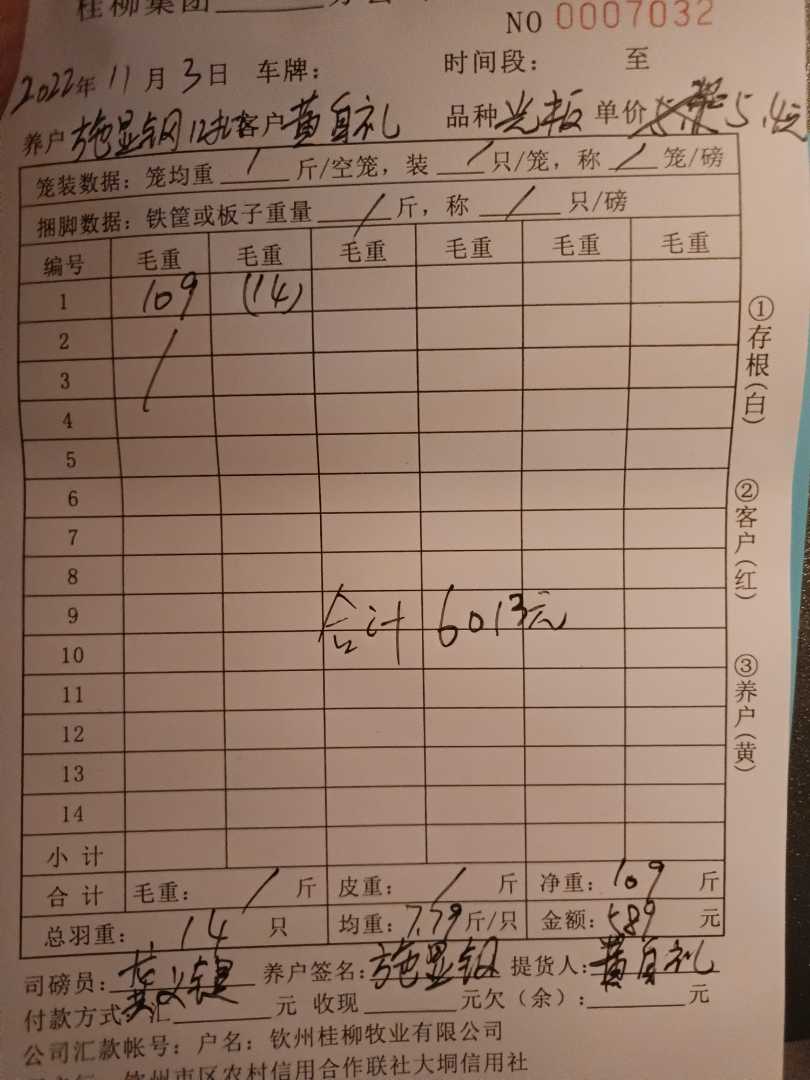 桂柳集团
NO 0007032
2022年11月3日 车牌： 时间段： 至
养户 施显钢12批 客户 黄自礼 品种 光板 单价 5.4元
笼装数据：笼均重 / 斤/空笼，装 / 只/笼，称 / 笼/磅
捆脚数据：铁筐或板子重量 / 斤，称 / 只/磅
编号 毛重 毛重 毛重 毛重 毛重 毛重
1 109 (14)
2 /
3
4
5
6
7
8
9 合计 6013元
10
11
12
13
14
小计
合计 毛重： / 斤 皮重： / 斤 净重：109 斤
总羽重： 14 只 均重：7.79斤/只 金额：589 元
司磅员： 养户签名：施显钢 提货人：黄自礼
付款方式：汇 元 收现 元欠（余）： 元
公司汇款帐号：户名：钦州桂柳牧业有限公司
钦州市区农村信用合作联社大垌信用社
①存根(白)
②客户(红)
③养户(黄)